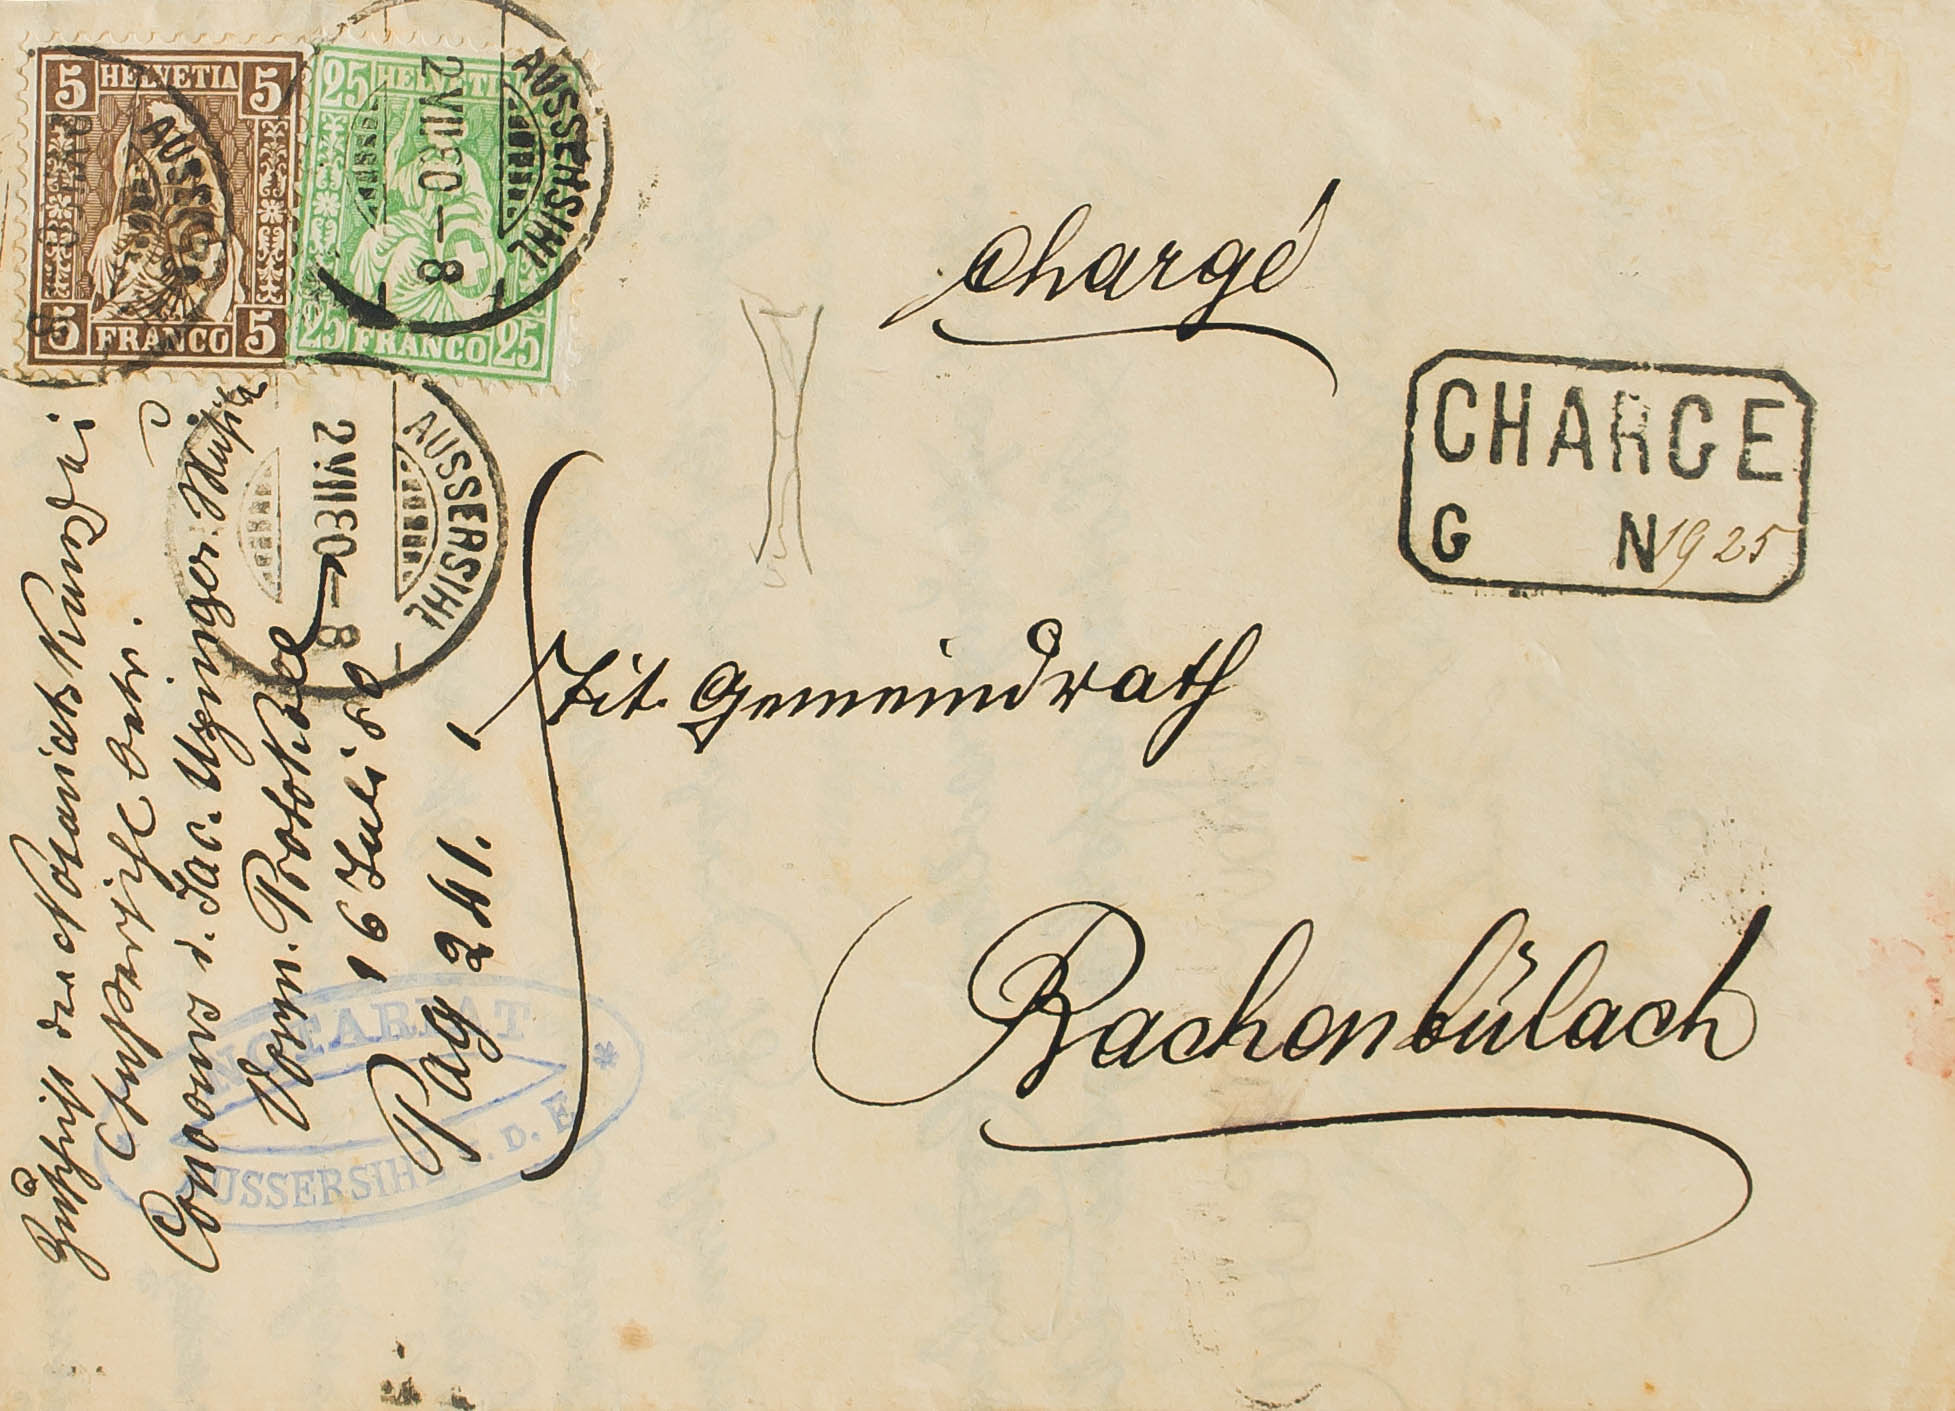 5 HELVETIA 5
5 FRANCO 5
25 HELVETIA
25 FRANCO 25
AUSSERSIHL
2 VII 80 – 8
AUSSERSIHL
2 VII 80 – 8
AUS
Chargé
CHARGE
G N 1925
Tit. Gemeindrath
Bachenbülach
Zuschrift der Notariatskanzlei
Aussersihl betr.
Jac. Utzinger
Vorm. Protokoll
16 Juli 80
Pag 241.
NOTARIAT
AUSSERSIHL